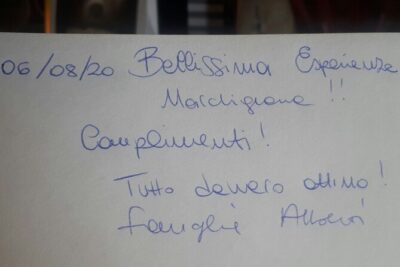 06/08/20 Bellissima Esperienza
Marchigiana !!
Complimenti!
Tutto davvero ottimo!
Famiglia